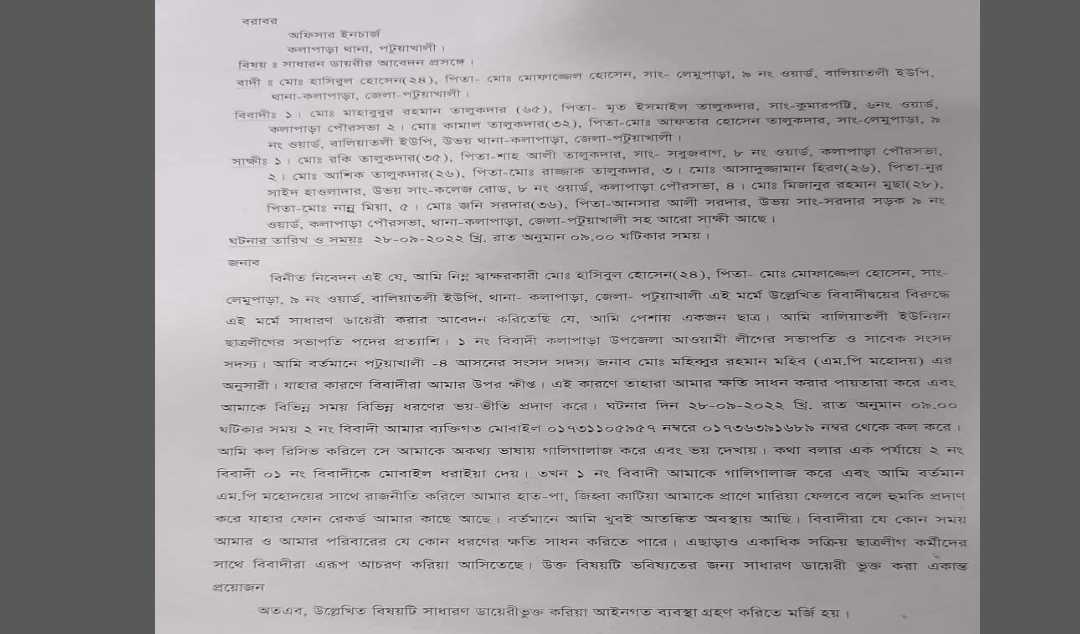 বরাবর
অফিসার ইনচার্জ
কলাপাড়া থানা, পটুয়াখালী।
বিষয় ঃ সাধারন ডায়রীর আবেদন প্রসঙ্গে।
বাদী ঃ মোঃ হাসিবুল হোসেন(২৪), পিতা- মোঃ মোফাজ্জেল হোসেন, সাং- লেমুপাড়া, ৯ নং ওয়ার্ড, বালিয়াতলী ইউপি,
থানা-কলাপাড়া, জেলা-পটুয়াখালী।
বিবাদীঃ ১। মোঃ মাহাবুবুর রহমান তালুকদার (৬৫), পিতা- মৃত ইসমাইল তালুকদার, সাং-কুমারপট্টি, ৬নং ওয়ার্ড,
কলাপাড়া পৌরসভা ২। মোঃ কামাল তালুকদার(৩২), পিতা-মোঃ আফতার হোসেন তালুকদার, সাং-লেমুপাড়া, ৯
নং ওয়ার্ড, বালিয়াতলী ইউপি, উভয় থানা-কলাপাড়া, জেলা-পটুয়াখালী।
সাক্ষীঃ ১। মোঃ রকি তালুকদার(৩৫), পিতা-শাহ আলী তালুকদার, সাং- সবুজবাগ, ৮ নং ওয়ার্ড, কলাপাড়া পৌরসভা,
২। মোঃ আশিক তালুকদার(২৬), পিতা-মোঃ রাজ্জাক তালুকদার, ৩। মোঃ আসাদুজ্জামান হিরণ(২৬), পিতা-নুর
সাইদ হাওলাদার, উভয় সাং-কলেজ রোড, ৮ নং ওয়ার্ড, কলাপাড়া পৌরসভা, ৪। মোঃ মিজানুর রহমান মুছা(২৮),
পিতা-মোঃ নান্নু মিয়া, ৫। মোঃ জনি সরদার(৩৬), পিতা-আনসার আলী সরদার, উভয় সাং-সরদার সড়ক ৯ নং
ওয়ার্ড, কলাপাড়া পৌরসভা, থানা-কলাপাড়া, জেলা-পটুয়াখালী সহ আরো সাক্ষী আছে।
ঘটনার তারিখ ও সময়ঃ ২৮-০৯-২০২২ খ্রি. রাত অনুমান ০৯.০০ ঘটিকার সময়।
জনাব
বিনীত নিবেদন এই যে, আমি নিম্ন স্বাক্ষরকারী মোঃ হাসিবুল হোসেন(২৪), পিতা- মোঃ মোফাজ্জেল হোসেন, সাং-
লেমুপাড়া, ৯ নং ওয়ার্ড, বালিয়াতলী ইউপি, থানা- কলাপাড়া, জেলা- পটুয়াখালী এই মর্মে উল্লেখিত বিবাদীদ্বয়ের বিরুদ্ধে
এই মর্মে সাধারণ ডায়েরী করার আবেদন করিতেছি যে, আমি পেশায় একজন ছাত্র। আমি বালিয়াতলী ইউনিয়ন
ছাত্রলীগের সভাপতি পদের প্রত্যাশি। ১ নং বিবাদী কলাপাড়া উপজেলা আওয়ামী লীগের সভাপতি ও সাবেক সংসদ
সদস্য। আমি বর্তমানে পটুয়াখালী -৪ আসনের সংসদ সদস্য জনাব মোঃ মহিব্বুর রহমান মহিব (এম.পি মহোদয়) এর
অনুসারী। যাহার কারণে বিবাদীরা আমার উপর ক্ষীপ্ত। এই কারণে তাহারা আমার ক্ষতি সাধন করার পায়তারা করে এবং
আমাকে বিভিন্ন সময় বিভিন্ন ধরণের ভয়-ভীতি প্রদাণ করে। ঘটনার দিন ২৮-০৯-২০২২ খ্রি. রাত অনুমান ০৯.০০
ঘটিকার সময় ২ নং বিবাদী আমার ব্যক্তিগত মোবাইল ০১৭৩১১০৫৯৫৭ নম্বরে ০১৭৩৬৩৯১৬৮৯ নম্বর থেকে কল করে।
আমি কল রিসিভ করিলে সে আমাকে অকথ্য ভাষায় গালিগালাজ করে এবং ভয় দেখায়। কথা বলার এক পর্যায়ে ২ নং
বিবাদী ০১ নং বিবাদীকে মোবাইল ধরাইয়া দেয়। তখন ১ নং বিবাদী আমাকে গালিগালাজ করে এবং আমি বর্তমান
এম.পি মহোদয়ের সাথে রাজনীতি করিলে আমার হাত-পা, জিহ্বা কাটিয়া আমাকে প্রাণে মারিয়া ফেলবে বলে হুমকি প্রদাণ
করে যাহার ফোন রেকর্ড আমার কাছে আছে। বর্তমানে আমি খুবই আতঙ্কিত অবস্থায় আছি। বিবাদীরা যে কোন সময়
আমার ও আমার পরিবারের যে কোন ধরণের ক্ষতি সাধন করিতে পারে। এছাড়াও একাধিক সক্রিয় ছাত্রলীগ কর্মীদের
সাথে বিবাদীরা এরূপ আচরণ করিয়া আসিতেছে। উক্ত বিষয়টি ভবিষ্যতের জন্য সাধারণ ডায়েরী ভুক্ত করা একান্ত
প্রয়োজন
অতএব, উল্লেখিত বিষয়টি সাধারণ ডায়েরীভুক্ত করিয়া আইনগত ব্যবস্থা গ্রহণ করিতে মর্জি হয়।